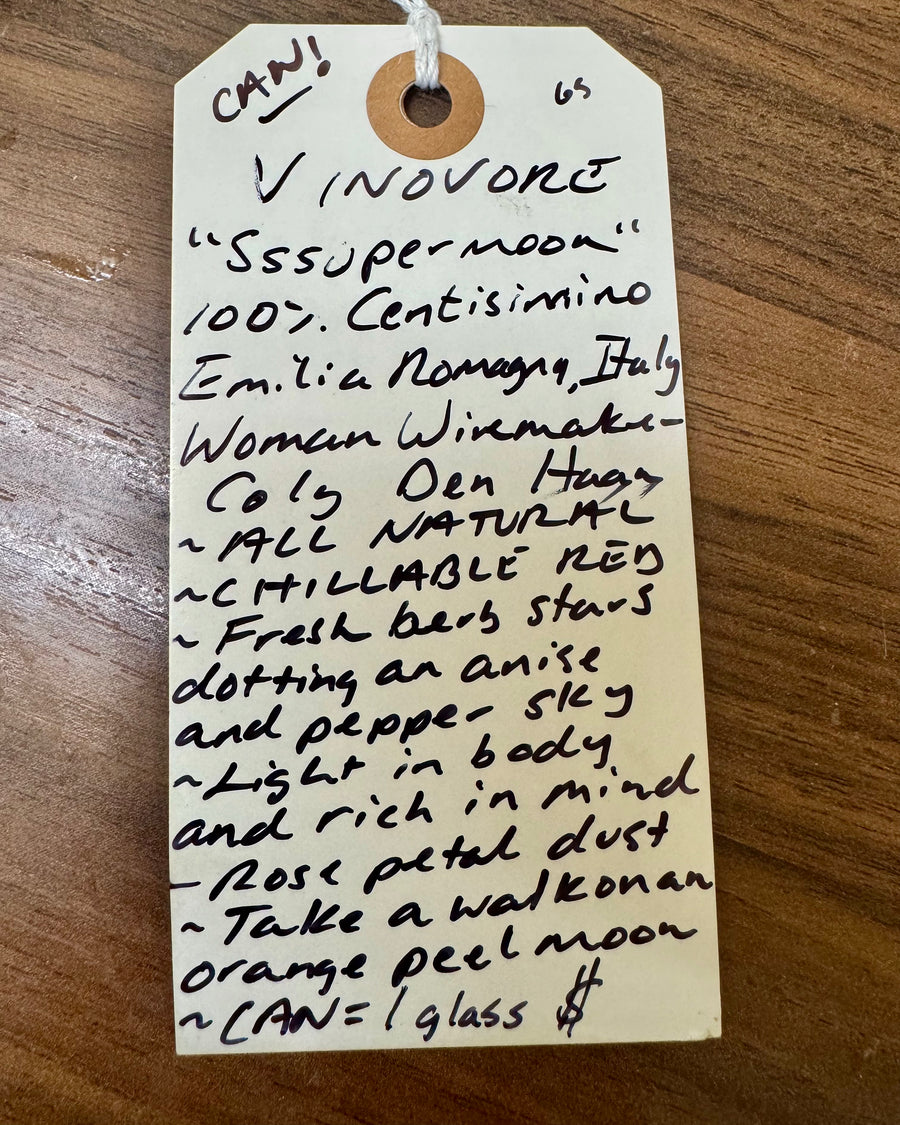 CAN!
VINOVORE
"Sssupermoon"
100%. Centisimino
Emilia Romagna, Italy
Woman Winemaker-
Coly Den Haan
~ALL NATURAL
~CHILLABLE RED
~ Fresh berb stars
dotting an anise
and pepper sky
~Light in body
and rich in mind
- Rose petal dust
~ Take a walk on an
orange peel moon
~ CAN = 1 glass $